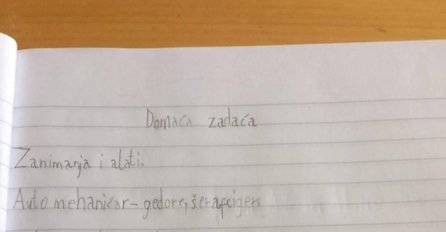 Domaća zadaća
Zanimanja i alati.
Auto mehaničar - gedore, šerafcigen